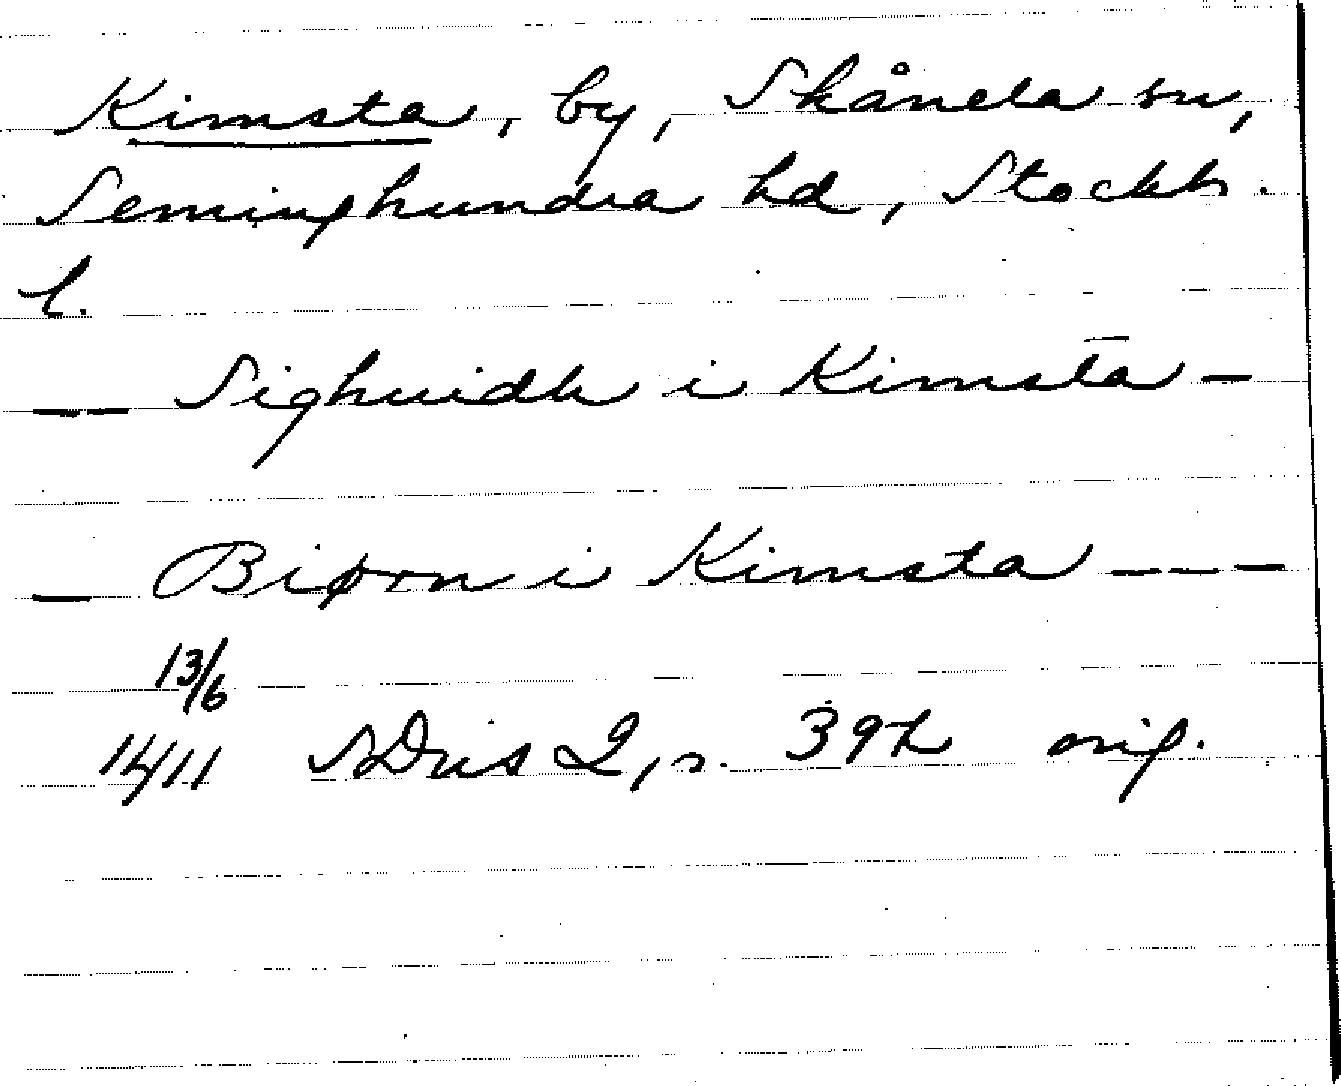 Kimsta, by, Skånela sn,
Seminghundra hd, Stockh.
l.
— Sighuidh i Kimsta —
— Biørn i Kimsta ---
13/6
1411 SDns 2, s. 392 orig.